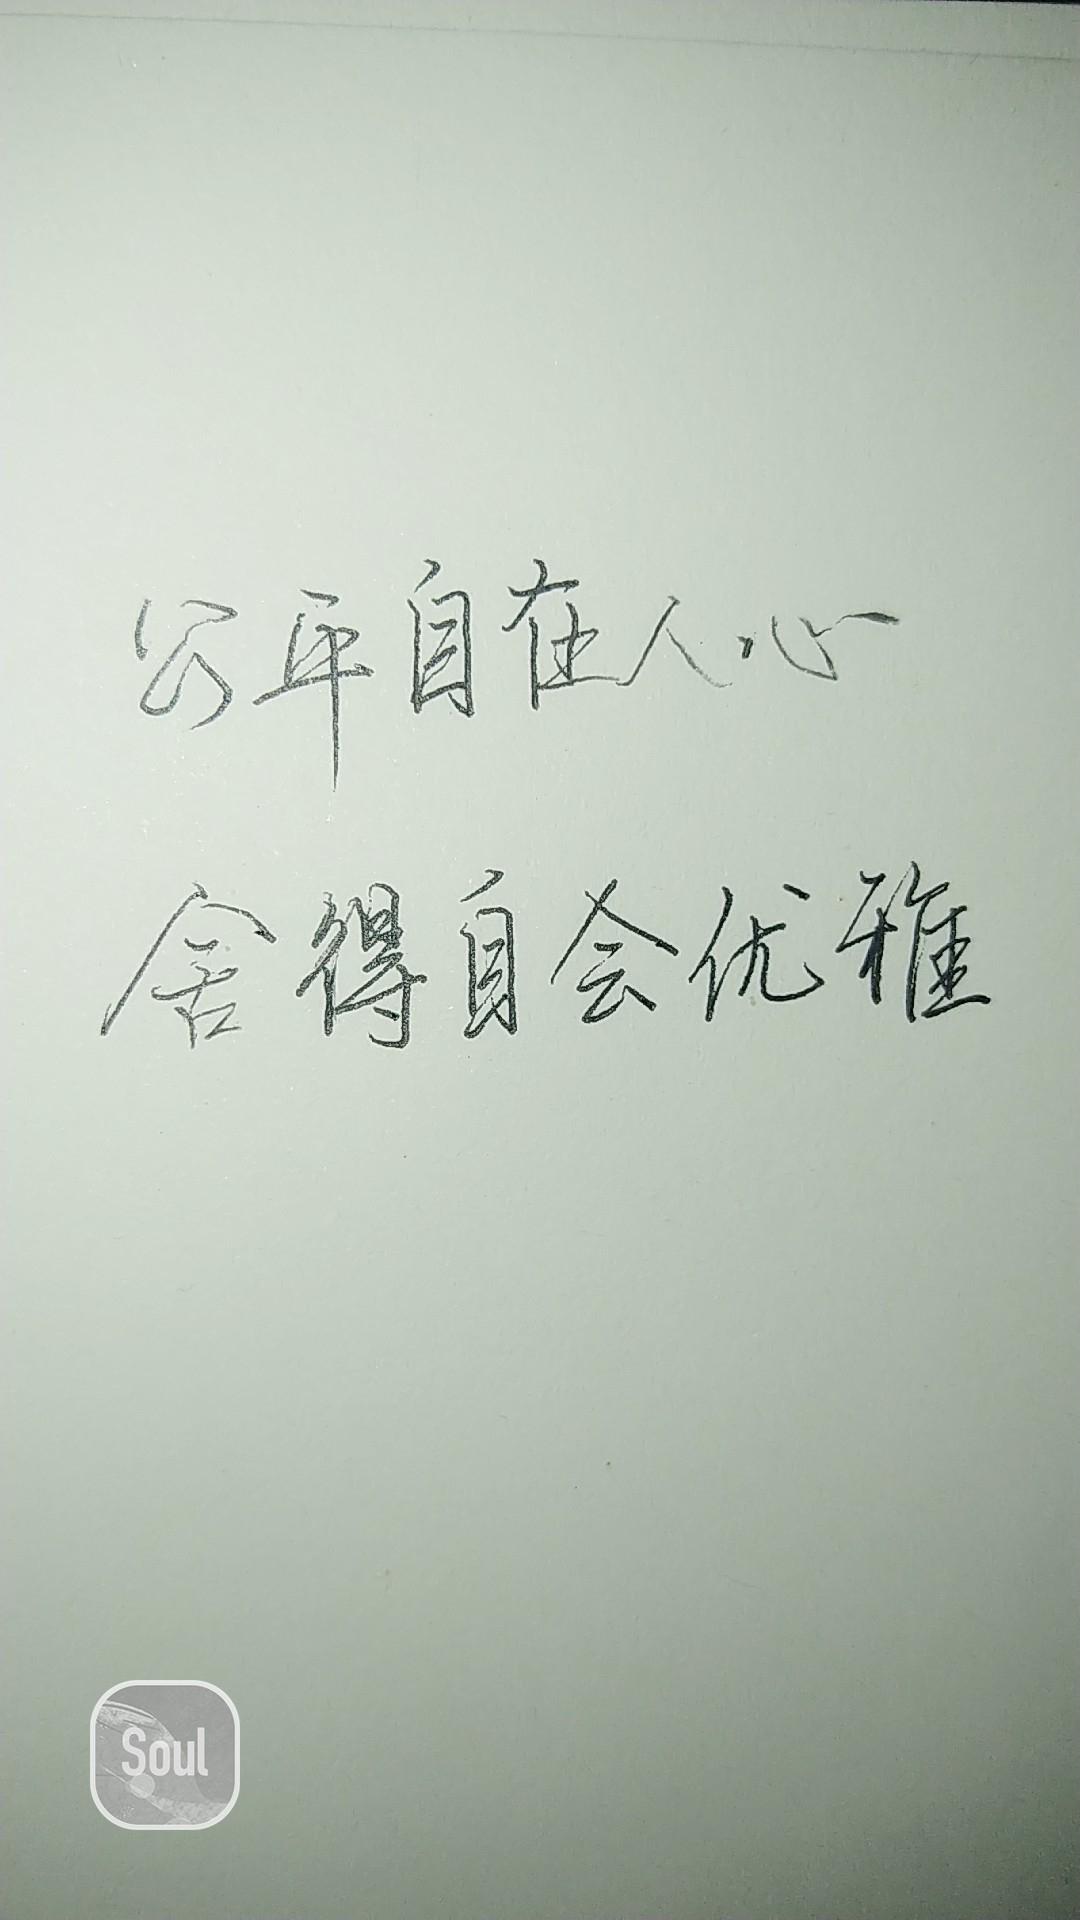 公平自在人心
舍得自会优雅
Soul